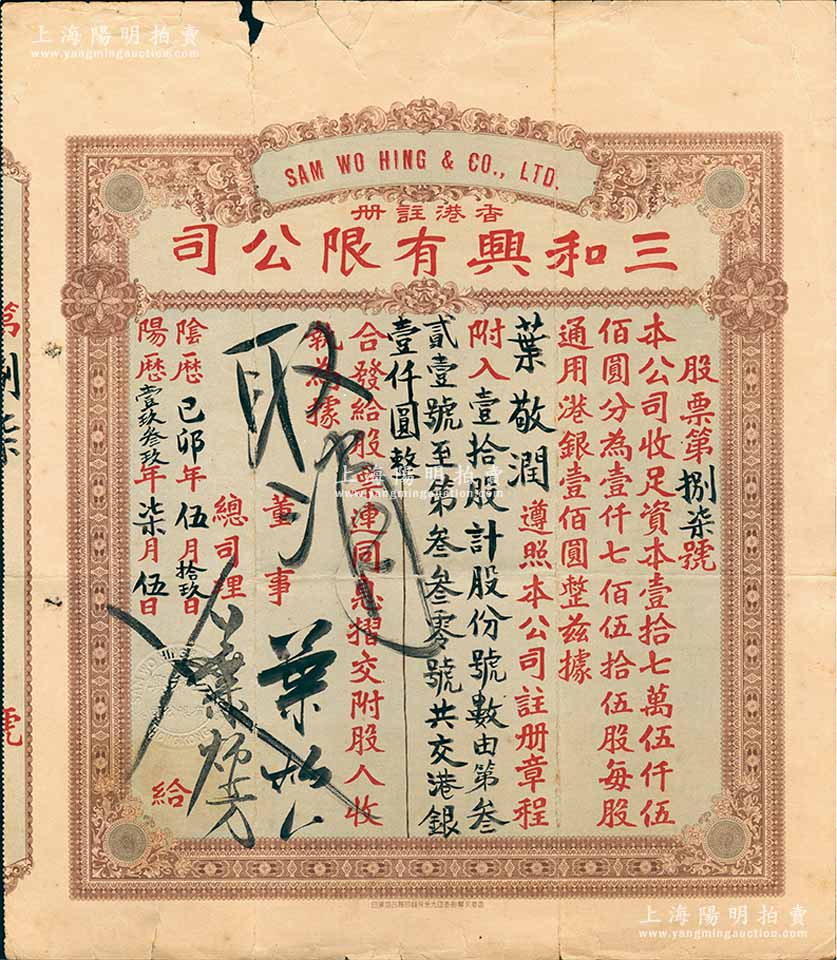 上海陽明拍賣
www.yangmingauction.com
SAM WO HING & CO., LTD.
香港註冊
三和興有限公司
股票第捌柒號
本公司收足資本壹拾七萬伍仟伍
佰圓分為壹仟七佰伍拾伍股每股
通用港銀壹佰圓整兹據
葉敬潤 遵照本公司註册章程
附入壹拾股計股份號數由第叁
貳壹號至第叁叁零號共交港銀
壹仟圓整
合發給股票連同息摺交附股人收
執為據
取消
董事
總司理
陰歷己卯年伍月拾玖日
陽歷壹玖叁玖年柒月伍日
給
第捌柒
號
上海陽明拍賣
www.yangmingauction.com
上海陽明拍賣
www.yangmingauction.com